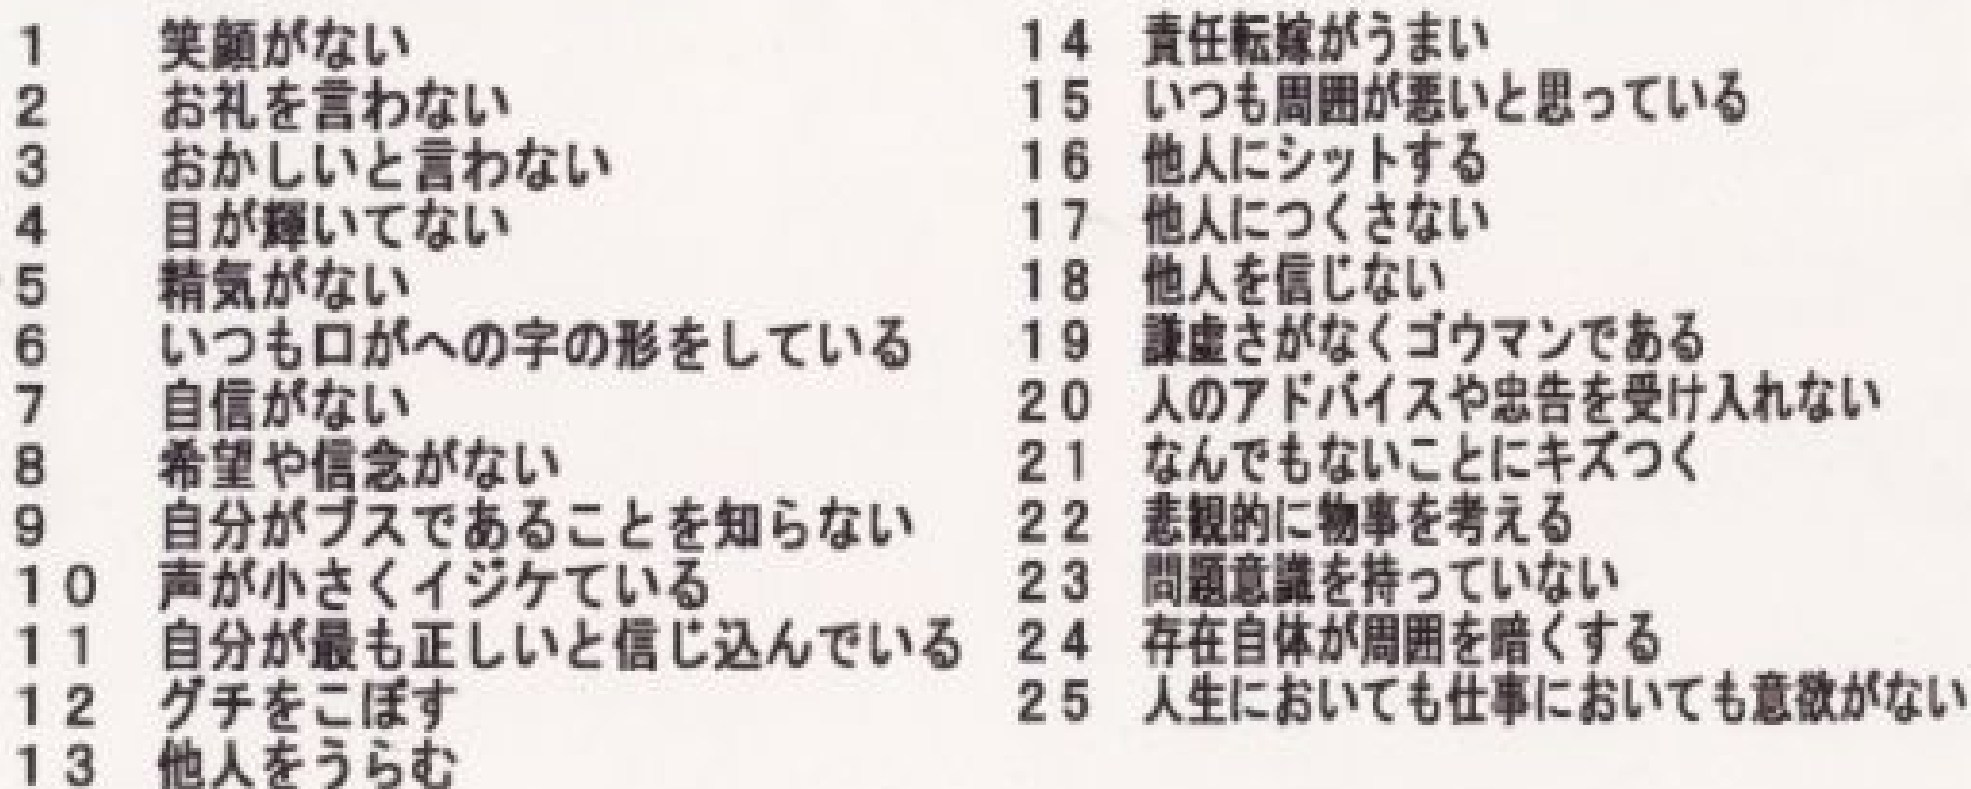 1 笑顔がない
2 お礼を言わない
3 おかしいと言わない
4 目が輝いてない
5 精気がない
6 いつも口がへの字の形をしている
7 自信がない
8 希望や信念がない
9 自分がブスであることを知らない
10 声が小さくイジケている
11 自分が最も正しいと信じ込んでいる
12 グチをこぼす
13 他人をうらむ
14 責任転嫁がうまい
15 いつも周囲が悪いと思っている
16 他人にシットする
17 他人につくさない
18 他人を信じない
19 謙虚さがなくゴウマンである
20 人のアドバイスや忠告を受け入れない
21 なんでもないことにキズつく
22 悲観的に物事を考える
23 問題意識を持っていない
24 存在自体が周囲を暗くする
25 人生においても仕事においても意欲がない